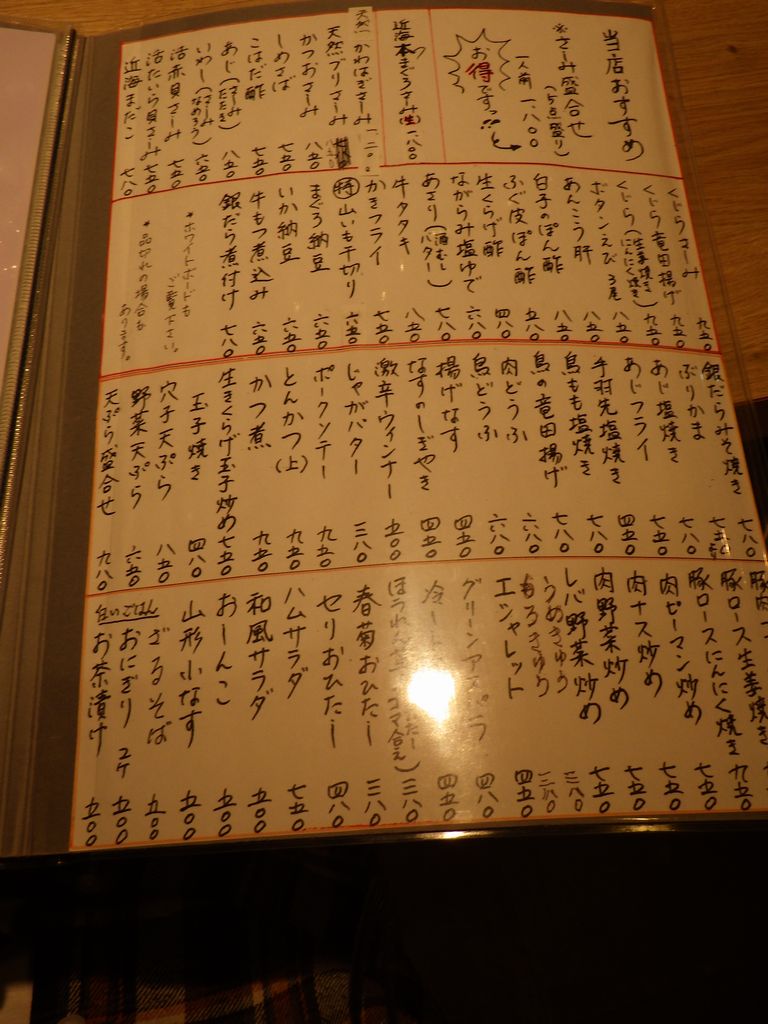 当店おすすめ
※さしみ盛合せ
(5点盛り)
一人前 一、八〇〇
お得ですっ!!と
近海本まぐろさしみ(生) 一、八〇〇
天然 かわはぎさしみ 一、二〇〇
天然ブリさしみ
かつおさしみ 八五〇
しめさば 七五〇
こはだ酢 七五〇
あじ(さしみ たたき) 八五〇
いわし(さしみ なめろう) 六五〇
活赤貝さしみ 七五〇
活たいら貝さしみ 七五〇
近海まだこ 七八〇
くじらさしみ 九五〇
くじら竜田揚げ 九五〇
くじら(生姜焼き にんにく焼き) 九五〇
ボタンえび 3尾 八五〇
あんこう肝 八五〇
白子のぽん酢 八五〇
ふぐ皮ぽん酢 五八〇
生くらげ酢 四八〇
ながらみ塩ゆで 六八〇
あさり(酒むし バター) 七八〇
牛タタキ 八五〇
かきフライ 七五〇
特 山いも千切り 六五〇
まぐろ納豆 六五〇
いか納豆 六五〇
牛もつ煮込み 六五〇
銀だら煮付け 七八〇
*ホワイトボードも
ご覧下さい。
*品切れの場合も
あります。
銀だらみそ焼き 七八〇
ぶりかま
あじ塩焼き 七八〇
あじフライ 七五〇
手羽先塩焼き 四五〇
鳥もも塩焼き 七八〇
鳥の竜田揚げ 七八〇
肉どうふ 六八〇
鳥どうふ 六八〇
揚げなす 四五〇
なすのしぎやき 四五〇
激辛ウィンナー 五〇〇
じゃがバター 三八〇
ポークソテー 九五〇
とんかつ(上) 九五〇
かつ煮 九五〇
生きくらげ玉子炒め 七五〇
玉子焼き 四八〇
穴子天ぷら 八五〇
野菜天ぷら 六五〇
天ぷら盛合せ 九八〇
豚ロース生姜焼き 九五〇
豚ロースにんにく焼き 九五〇
肉ピーマン炒め 七五〇
肉ナス炒め 七五〇
肉野菜炒め 七五〇
レバ野菜炒め 七五〇
うめきゅう 三八〇
もろきゅう 三八〇
エシャレット 四五〇
グリーンアスパラ 四八〇
冷 四五〇
ほうれん草 ゴマ合え) 三八〇
春菊おひたし 三八〇
セリおひたし 四八〇
ハムサラダ 七五〇
和風サラダ 五〇〇
おしんこ 五〇〇
山形小なす 五〇〇
ざるそば 五〇〇
白いごはん おにぎり 2ケ 五〇〇
お茶漬け 五〇〇